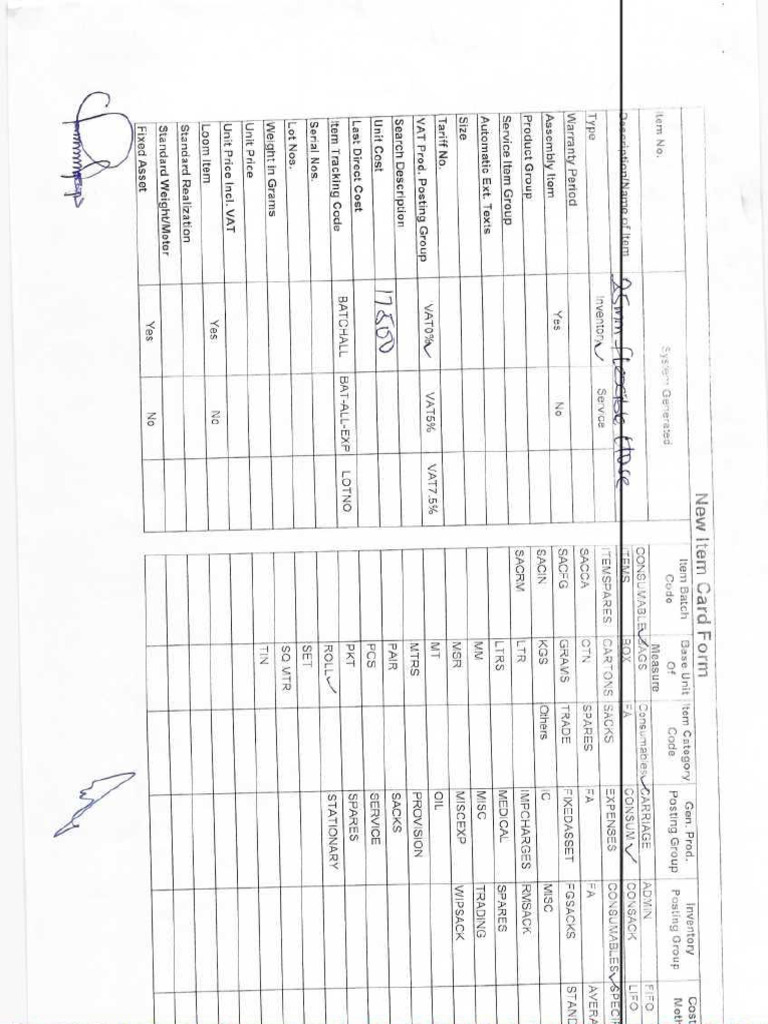 New Item Card Form
Item No. System Generated
Description/Name of Item 25mm flexible Hose
Type Inventory ✓ Service
Warranty Period
Assembly Item Yes No
Product Group
Service Item Group
Automatic Ext. Texts
Size
Tariff No.
VAT Prod. Posting Group VAT0% ✓ VAT5% VAT7.5%
Search Description
Unit Cost 17500
Last Direct Cost
Item Tracking Code BATCHALL BAT-ALL-EXP LOTNO
Serial Nos.
Lot Nos.
Weight in Grams
Unit Price
Unit Price Incl. VAT
Loom Item Yes No
Standard Realization
Standard Weight/Meter
Fixed Asset Yes No
Item Batch Code Base Unit Of Measure Item Category Code Gen. Prod. Posting Group Inventory Posting Group Cost
CONSUMABLE ✓ BAGS Consumables ✓ CARRIAGE ADMIN FIFO
ITEMS BOX FA CONSUM ✓ CONSACK LIFO
ITEMSPARES CARTONS SACKS EXPENSES CONSUMABLES ✓ SPECI
SACCA CTN SPARES FA FA AVERA
SACFG GRAMS TRADE FIXEDASSET FGSACKS STAND
SACIN KGS Others IC MISC
SACRM LTR IMPCHARGES RMSACK
LTRS MEDICAL SPARES
MM MISC TRADING
MSR MISCEXP WIPSACK
MT OIL
MTRS PROVISION
PAIR SACKS
PCS SERVICE
PKT SPARES
ROLL ✓ STATIONARY
SET
SQ.MTR
TIN